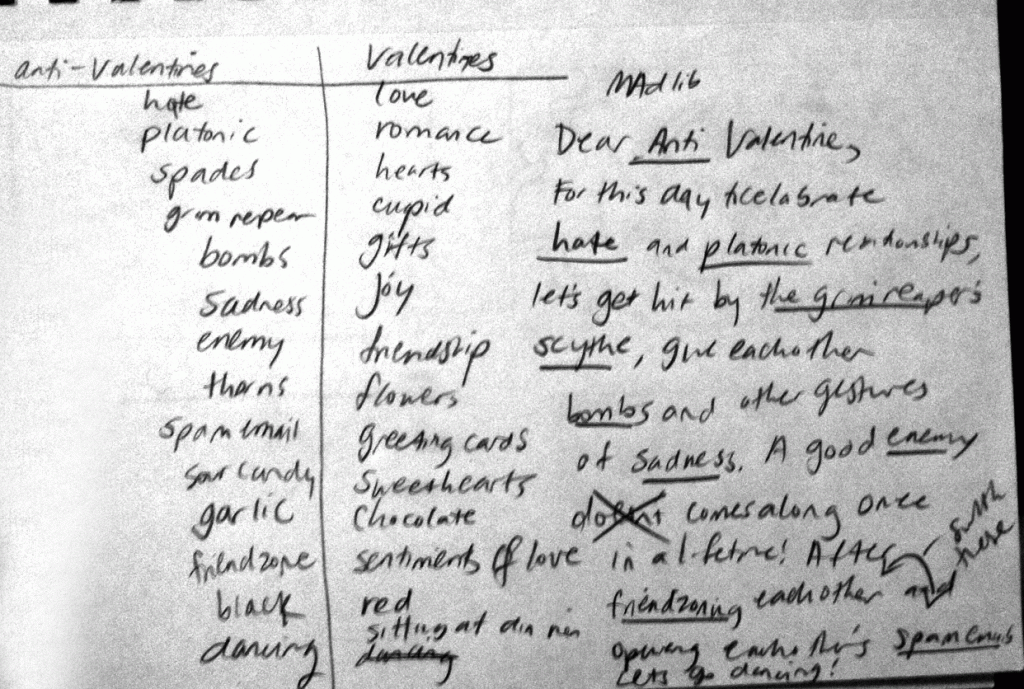 anti-Valentines Valentines
hate love
platonic romance
spades hearts
grim repear cupid
bombs gifts
Sadness Joy
enemy friendship
thorns flowers
spam email greeting cards
sour candy Sweethearts
garlic Chocolate
friendzone sentiments of love
black red
dancing sitting at din nin
dancing
MAdlib
Dear Anti Valentine,
For this day
hate and platonic relationships,
let's get hit by the grim reaper's
scythe, give eachother
bombs and other gestures
of sadness. A good enemy
doesnt comes along once
in a lifetime! After
friendzoning eachother and
opening eachother's spam emails
Lets go dancing!
switch
here